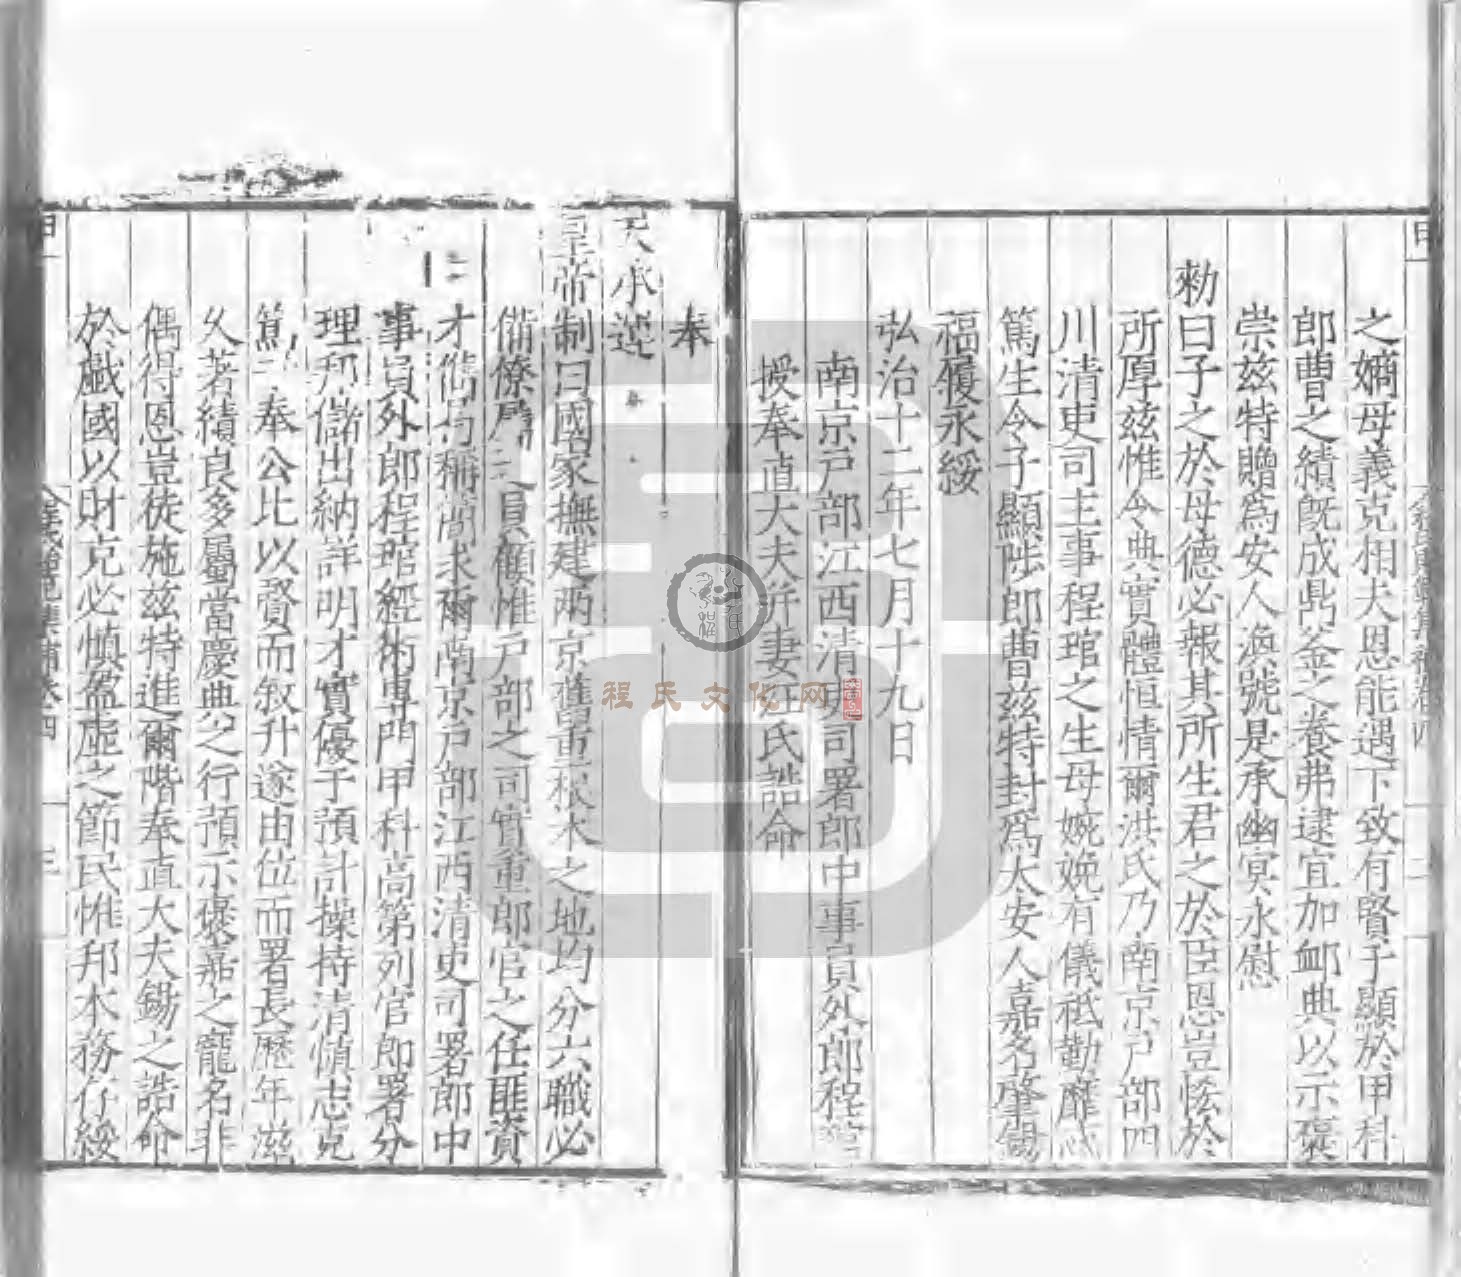 之嫡母義克相夫恩能遇下致有賢子顯於甲科
郎曹之績既成鼎釜之養弗逮宜加䘏典以示褒
崇兹特贈爲安人渙號是承幽冥永慰
勑曰子之於母德必報其所生君之於臣恩豈恡於
所厚兹惟令典實體恒情爾洪氏乃南京戸部四
川清吏司主事程琯之生母婉娩有儀祗勤靡
篤生令子顯陟郎曹兹特封爲太安人嘉名肇錫
福履永綏
弘治十二年七月十九日
南京戸部江西清吏司署郎中事員外郎程
授奉直大夫并妻汪氏誥命
奉
天承運
皇帝制曰國家撫建兩京雖留重根本之地均分六職必
備僚屬之員顧惟戸部之司實重郎官之任匪資
才能曷稱簡求爾南京戸部江西清吏司署郎中
事員外郎程琯經術專門甲科高第列官郎署分
理邦儲出納詳明才實優于預計操持清慎志克
篤于奉公比以賢而敘升遂由位而署長歷年滋
久著績良多屬當慶典之行預示褒嘉之寵名非
偶得恩豈徒施兹特進爾階奉直大夫錫之誥命
於戲國以財克必慎盈虛之節民惟邦本務存綏
程氏文化网